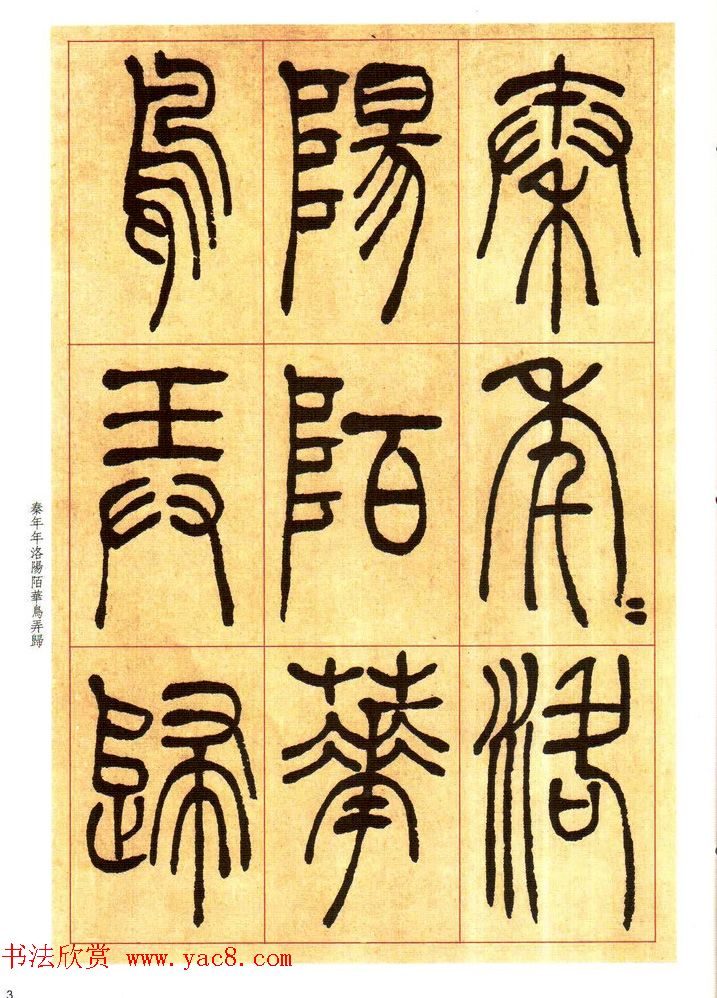 秦年〻洛
陽陌華
鳥弄歸
秦年年洛陽陌華鳥弄歸
书法欣赏 www.yac8.com
3